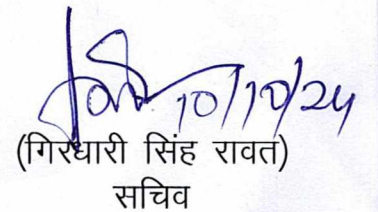 10/10/24
(गिरधारी सिंह रावत)
सचिव